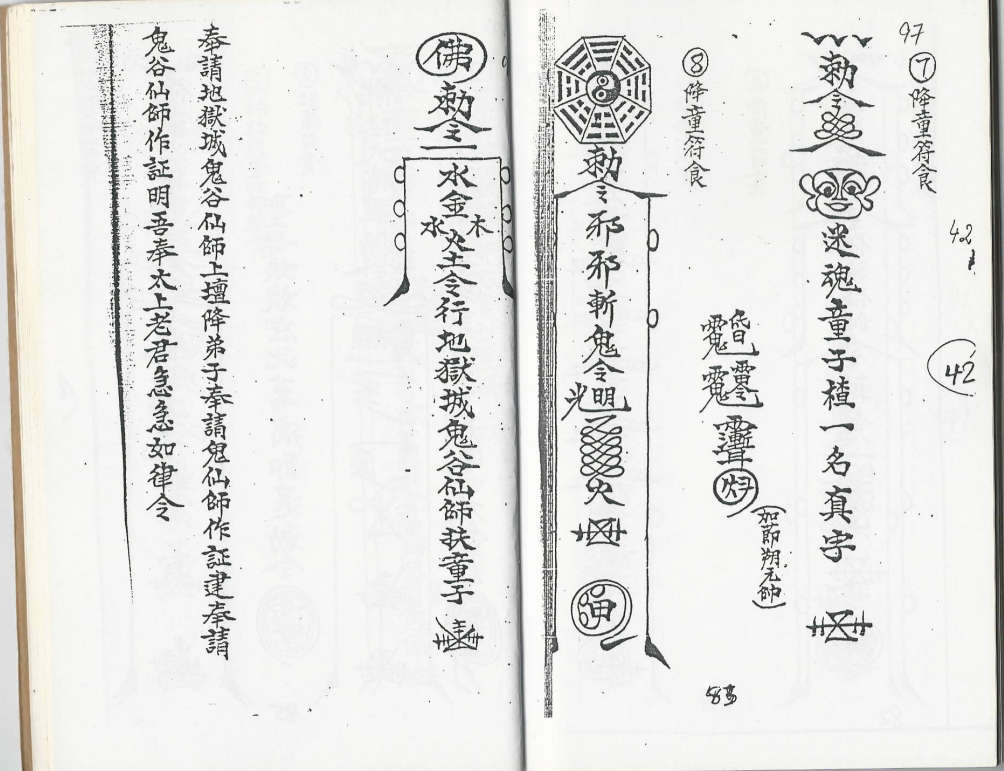 97
⑦降童符食
勅令
迷魂童子楂一名真字
42
42
⑧降童符食
(如節翔元帥)
勅令邪邪斬鬼令
光明
火
佛
勅令
水金火土令行地獄城鬼谷仙師扶童子
水 木
奉請地獄城鬼谷仙師上壇降弟子奉請鬼仙師作証建奉請
鬼谷仙師作証明吾奉太上老君急急如律令